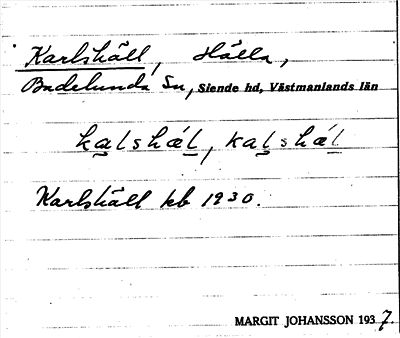 Karlshäll, Hälla,
Badelunda Sn, Siende hd, Västmanlands län
kal̲shál̲, kal̲shál̲
Karlshäll kb 1930.
MARGIT JOHANSSON 1937.